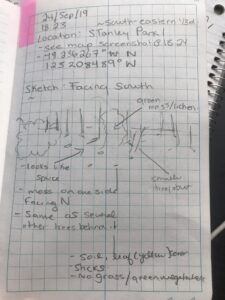 24/Sep/19
18:23 ~ South-eastern
Location: Stanley Park
- see map screenshot @ 18.24
- 49.256267° N
123208489° W
Sketch: Facing South
green
moss/lichen
- looks like
spruce
smaller
- moss on one side
facing N
- Same as several
other trees behind it
- Soil, leaf (yellow)
Sticks
- No grass/green vegetation